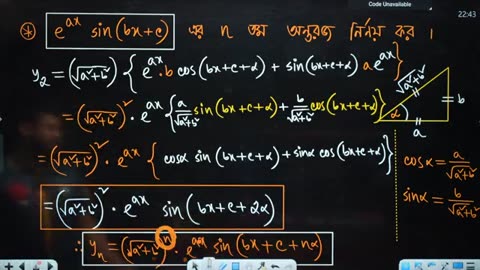 Code Unavailable
22:43
⊛ e^{ax} sin(bx+c) এর n তম অন্তরজ নির্ণয় কর।
y₂ = (√a²+b²) { e^{ax}·b cos(bx+c+α) + sin(bx+c+α) a e^{ax} }
= (√a²+b²)² · e^{ax} { a/√a²+b² sin(bx+c+α) + b/√a²+b² cos(bx+c+α) }
= (√a²+b²)² · e^{ax} { cosα sin(bx+c+α) + sinα cos(bx+c+α) }
= (√a²+b²)² · e^{ax} sin(bx+c+2α)
∴ yₙ = (√a²+b²)ⁿ · e^{ax} sin(bx+c+nα)
√a²+b²
b
α
a
cosα = a/√a²+b²
sinα = b/√a²+b²